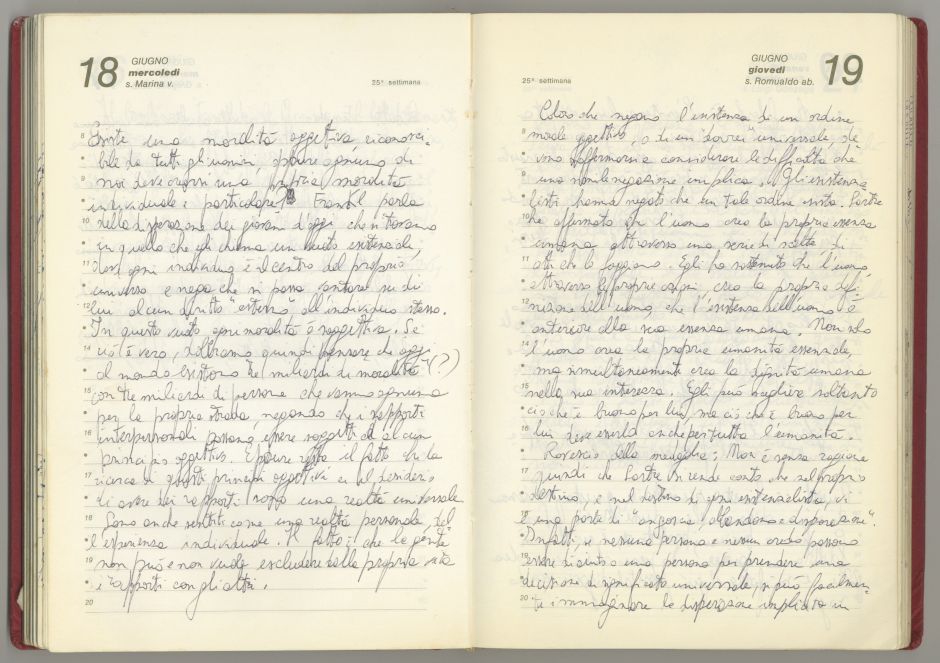 18
GIUGNO
mercoledì
s. Marina v.
25ª settimana
8
Esiste una moralità oggettiva, riconosci-
bile da tutti gli uomini, oppure ognuno di
9
noi deve crearsi una propria moralità
individuale e particolare? Frankl parla
10
della disperazione dei giorni d'oggi che si trovano
in quello che egli chiama un vuoto esistenziale,
11
dove ogni individuo è il centro del proprio
universo e nega che si possa contare su di
12
lui alcun diritto "esterno" all'individuo stesso.
In questo vuoto ogni moralità è soggettiva. Se
14
ciò è vero, dobbiamo quindi pensare che oggi
al mondo esistono tre miliardi di moralità (?)
15
con tre miliardi di persone che vanno ognuna
per la propria strada, negando che i rapporti
16
interpersonali possano essere soggetti ad alcun
principio oggettivo. Eppure resta il fatto che la
17
ricerca di questi principi oggettivi e il desiderio
di avere dei rapporti sono una realtà universale
18
Sono anche sentiti come una realtà personale, del
l'esperienza individuale. Il fatto è che la gente
19
non può e non vuole escludere dalla propria vita
i rapporti con gli altri.
20
GIUGNO
giovedì
s. Romualdo ab.
19
25ª settimana
Coloro che negano l'esistenza di un ordine
8
morale oggettivo, o di un "dovrei" universale, de-
vono soffermarsi a considerare le difficoltà che
9
una simile negazione implica. Gli esistenzia
listi hanno negato che un tale ordine esista. Sartre
10
ha affermato che l'uomo crea la propria essenza
umana attraverso una serie di scelte, di
11
atti che lo foggiano. Egli ha sostenuto che l'uomo,
attraverso le proprie azioni, crea la propria defi-
12
nizione dell'uomo, che l'esistenza dell'uomo è
anteriore alla sua essenza umana. Non solo
14
l'uomo crea la propria umanità essenziale,
ma simultaneamente crea la dignità umana
15
nella sua interezza. Egli può scegliere soltanto
ciò che è buono per lui, ma ciò che è buono per
16
lui deve esserlo anche per tutta l'umanità.
Rovescio della medaglia: Non è senza ragione
17
quindi che Sartre si rende conto che nel proprio
destino e nel destino di ogni esistenzialista, vi
18
è una parte di "angoscia, abbandono e disperazione".
Infatti, se nessuna persona e nessun credo possono
19
essere di aiuto a una persona per prendere una
decisione di significato universale, si può facilmen-
20
te immaginare la disperazione implicata in